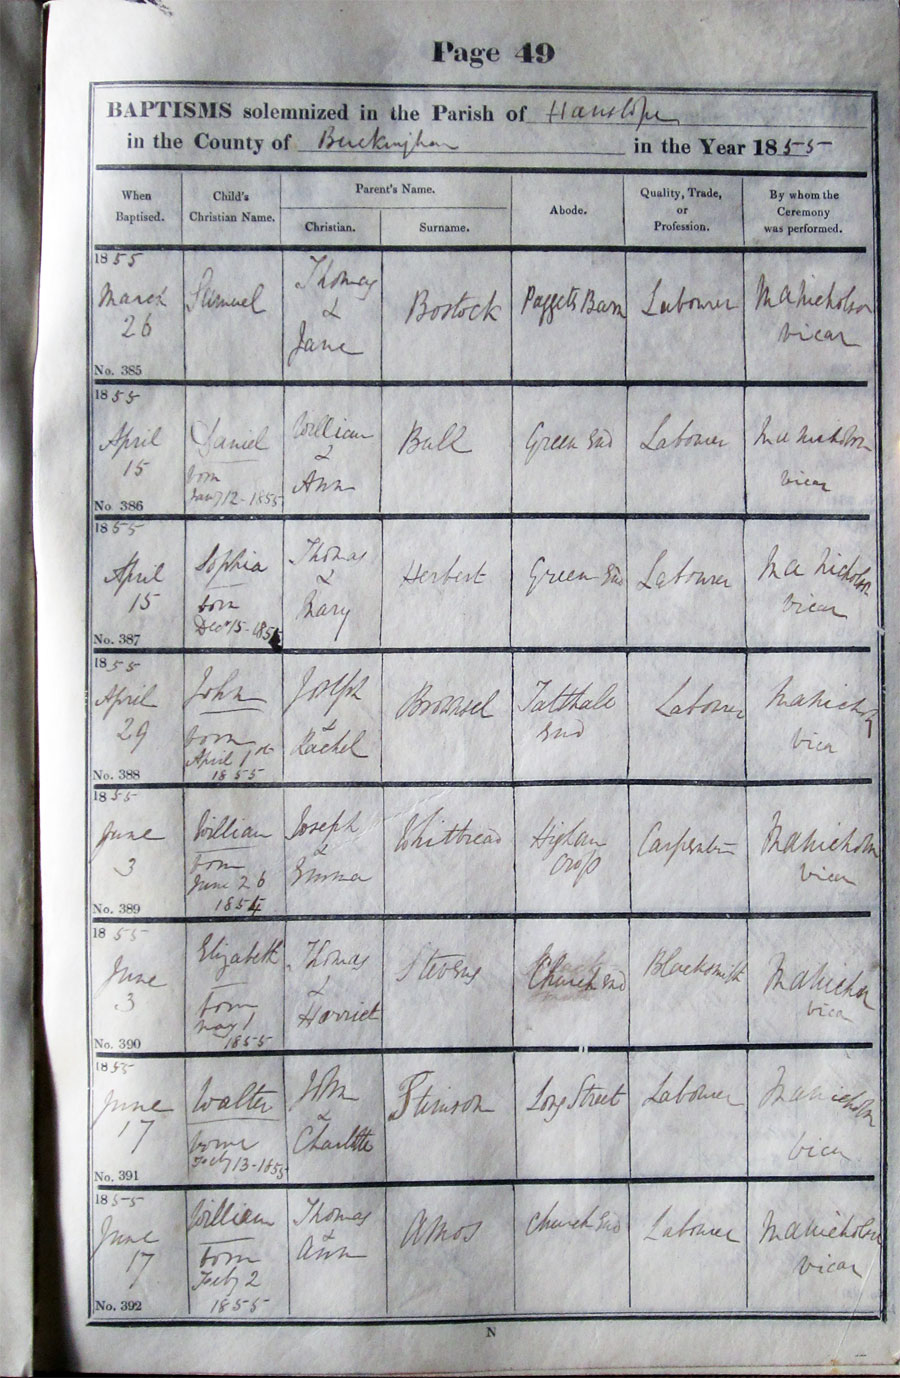 Page 49
BAPTISMS solemnized in the Parish of Hanslope
in the County of Buckingham in the Year 1855
When
Baptised.
Child's
Christian Name.
Parent's Name.
Christian.
Surname.
Abode.
Quality, Trade,
or
Profession.
By whom the
Ceremony
was performed.
1855
March
26
No. 385
Samuel
Thomas
&
Jane
Bostock
Paggets Barn
Labourer
M A Nicholson
Vicar
1855
April
15
No. 386
Daniel
born
12-1855
William
&
Ann
Ball
Green End
Labourer
M A Nicholson
Vicar
1855
April
15
No. 387
Sophia
born
Decr 15-
Thomas
&
Mary
Herbert
Green End
Labourer
M A Nicholson
Vicar
1855
April
29
No. 388
John
born
April 1st
1855
Joseph
&
Rachel
Tatthall
End
Labourer
M A Nicholson
Vicar
1855
June
3
No. 389
William
born
June 26
1854
Joseph
&
Emma
Whitbread
Higham
Cross
Carpenter
M A Nicholson
Vicar
1855
June
3
No. 390
Elizabeth
born
May 1
1855
Thomas
&
Harriet
Stevens
Church End
Blacksmith
M A Nicholson
Vicar
1855
June
17
No. 391
Walter
born
Feby 13-1855
John
&
Charlotte
Stimson
Long Street
Labourer
M A Nicholson
Vicar
1855
June
17
No. 392
William
born
Feby 2
1855
Thomas
&
Ann
Amos
Church End
Labourer
M A Nicholson
Vicar
N